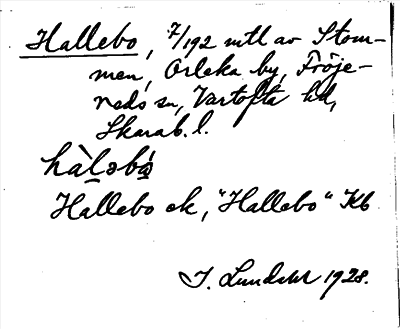 Hallebo, 7/192 mtl av Stom-
men, Orleka by, Fröje-
reds sn, Vartofta hd,
Skarab. l.
hàləbó
Hallebo ek, "Hallebo" Kb
I. Lundahl 1928.